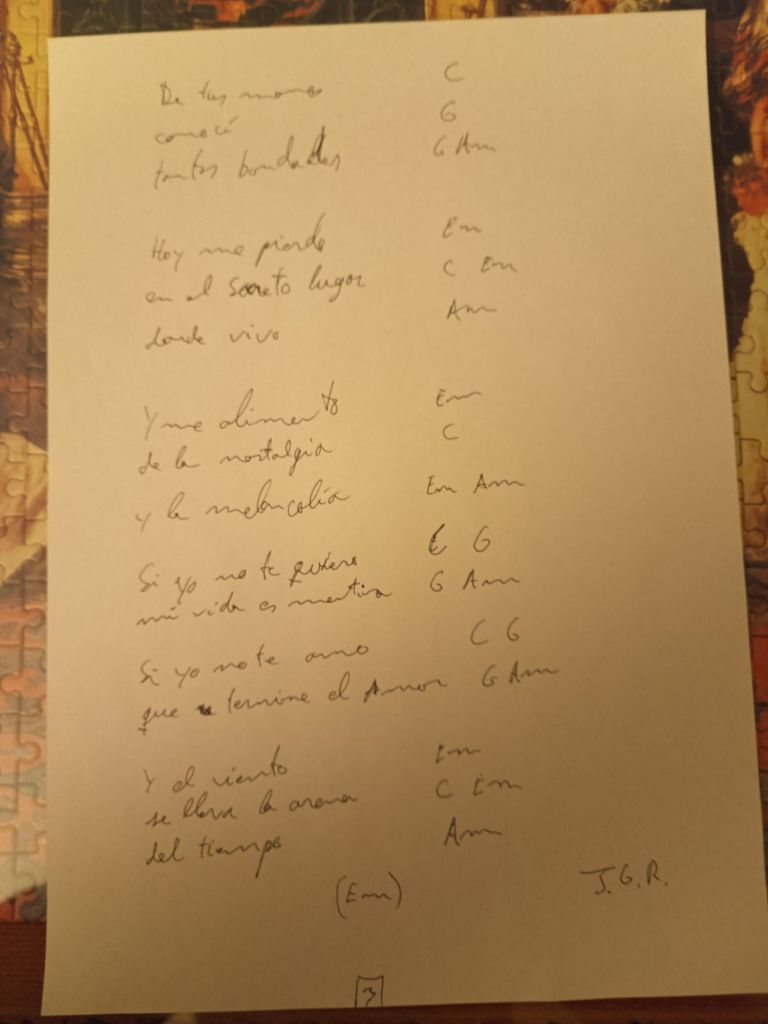 De tus manos C
conocí G
tantas bondades G Am
Hoy me pierdo Em
en el secreto lugar C Em
donde vivo Am
Y me alimento Em
de la nostalgia C
y la melancolía Em Am
Si yo no te quiero C G
mi vida es mentira G Am
Si yo no te amo C G
que termine el Amor G Am
Y el viento Em
se lleva la arena C Em
del tiempo Am
(Em) J.G.R.
3